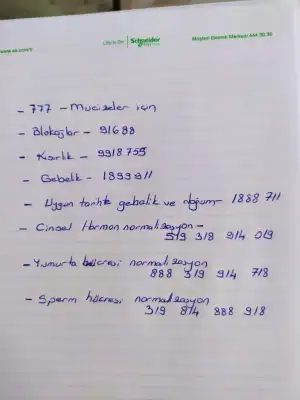 www.se.com/tr
Life Is On | Schneider Electric
Müşteri Destek Merkezi 444 30 30
- 777 - Mucizeler için
- Blokajlar - 91688
- Kısırlık - 9918755
- Gebelik - 1899911
- Uygun tarihte gebelik ve doğum - 1888 711
- Cinsel Hormon normalizasyon -
519 318 914 019
- Yumurta hücresi normalizasyon
888 319 914 718
- Sperm hücresi normalizasyon
319 814 888 918